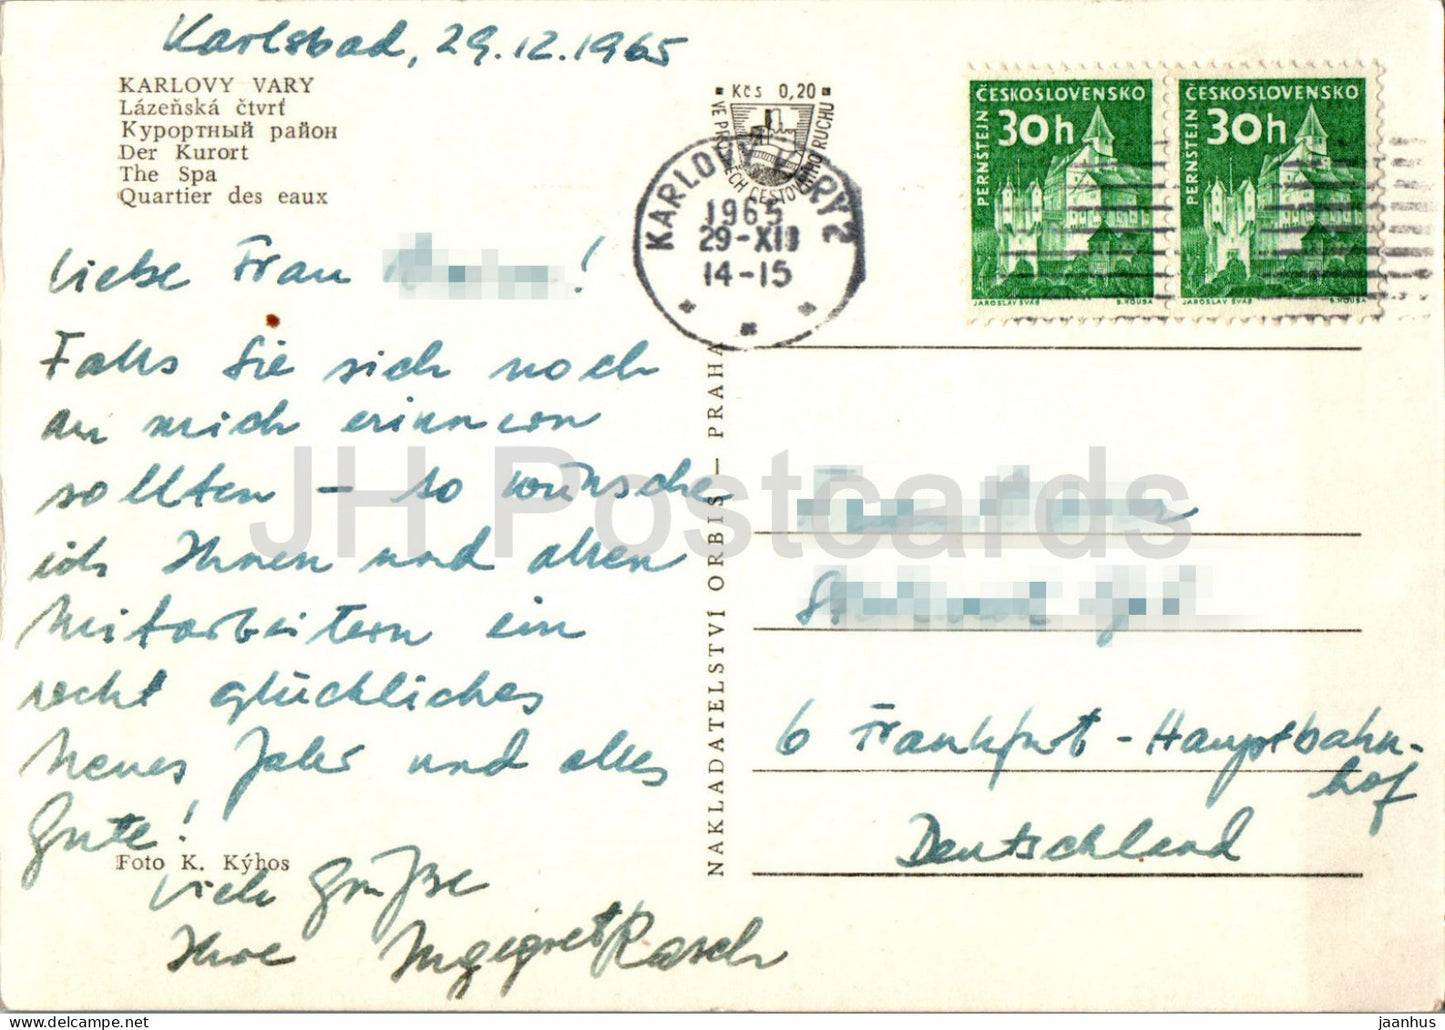 Karlsbad, 29.12.1965
KARLOVY VARY
Lázeňská čtvrť
Курортный район
Der Kurort
The Spa
Quartier des eaux
Kčs 0,20
CESTOVNÍHO RUCHU
KARLOVY VARY 2
1965
29-XII
14-15
ČESKOSLOVENSKO
30h
PERNŠTEJN
JAROSLAV ŠVÁB
B. HOUSA
ČESKOSLOVENSKO
30h
PERNŠTEJN
JAROSLAV ŠVÁB
B. HOUSA
Liebe Frau !
Falls Sie sich noch
an mich erinnern
sollten – so wünsche
ich Ihnen und allen
Mitarbeitern ein
recht glückliches
Neues Jahr und alles
Gute!
Foto K. Kýhos
Viele Grüße
Ihre Ingegret Rasch
NAKLADATELSTVÍ ORBIS — PRAHA
6 Frankfurt-Hauptbahn-
hof
Deutschland
JH Postcards
jaanhus